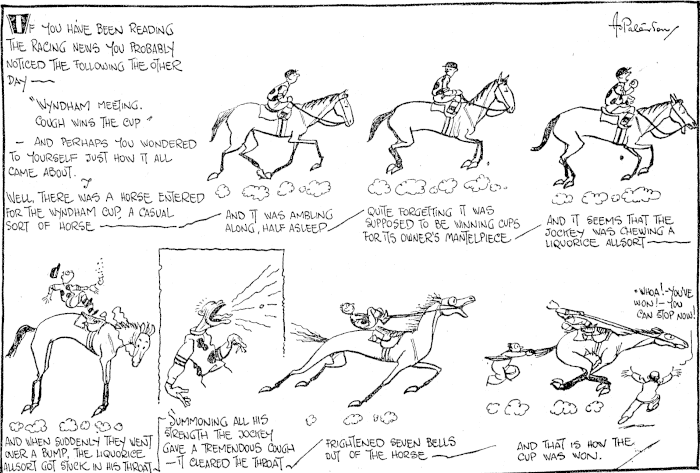 IF YOU HAVE BEEN READING
THE RACING NEWS YOU PROBABLY
NOTICED THE FOLLOWING THE OTHER
DAY —
"WYNDHAM MEETING.
COUGH WINS THE CUP"
— AND PERHAPS YOU WONDERED
TO YOURSELF JUST HOW IT ALL
CAME ABOUT.
WELL, THERE WAS A HORSE ENTERED
FOR THE WYNDHAM CUP, A CASUAL
SORT OF HORSE —
AND IT WAS AMBLING
ALONG, HALF ASLEEP
QUITE FORGETTING IT WAS
SUPPOSED TO BE WINNING CUPS
FOR ITS OWNER'S MANTELPIECE.
AND IT SEEMS THAT THE
JOCKEY WAS CHEWING A
LIQUORICE ALLSORT —
AND WHEN SUDDENLY THEY WENT
OVER A BUMP, THE LIQUORICE
ALLSORT GOT STUCK IN HIS THROAT
SUMMONING ALL HIS
STRENGTH THE JOCKEY
GAVE A TREMENDOUS COUGH
— IT CLEARED THE THROAT
FRIGHTENED SEVEN BELLS
OUT OF THE HORSE —
"WHOA! - YOU'VE
WON! - YOU
CAN STOP NOW!
AND THAT IS HOW THE
CUP WAS WON.